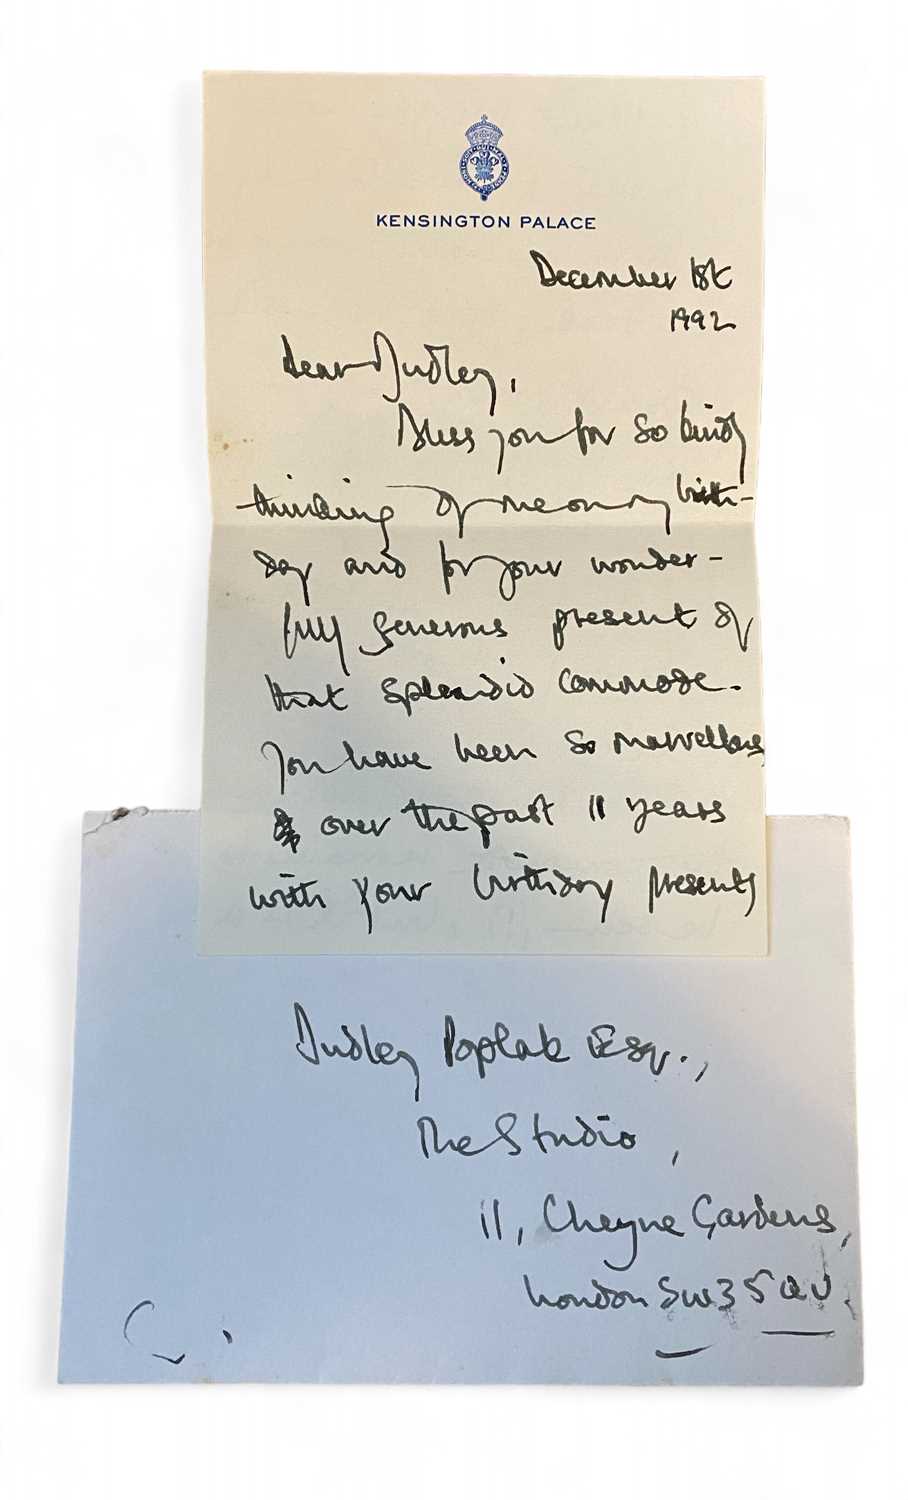 KENSINGTON PALACE
December 1st
1992
Dear Dudley,
Bless you for so kindly
thinking of me on my birth-
day and for your wonder-
fully generous present of
that splendid commode.
You have been so marvellous
over the past 11 years
with your birthday presents
Dudley Poplak Esq.,
The Studio,
11, Cheyne Gardens,
London SW3 5QU.
C.